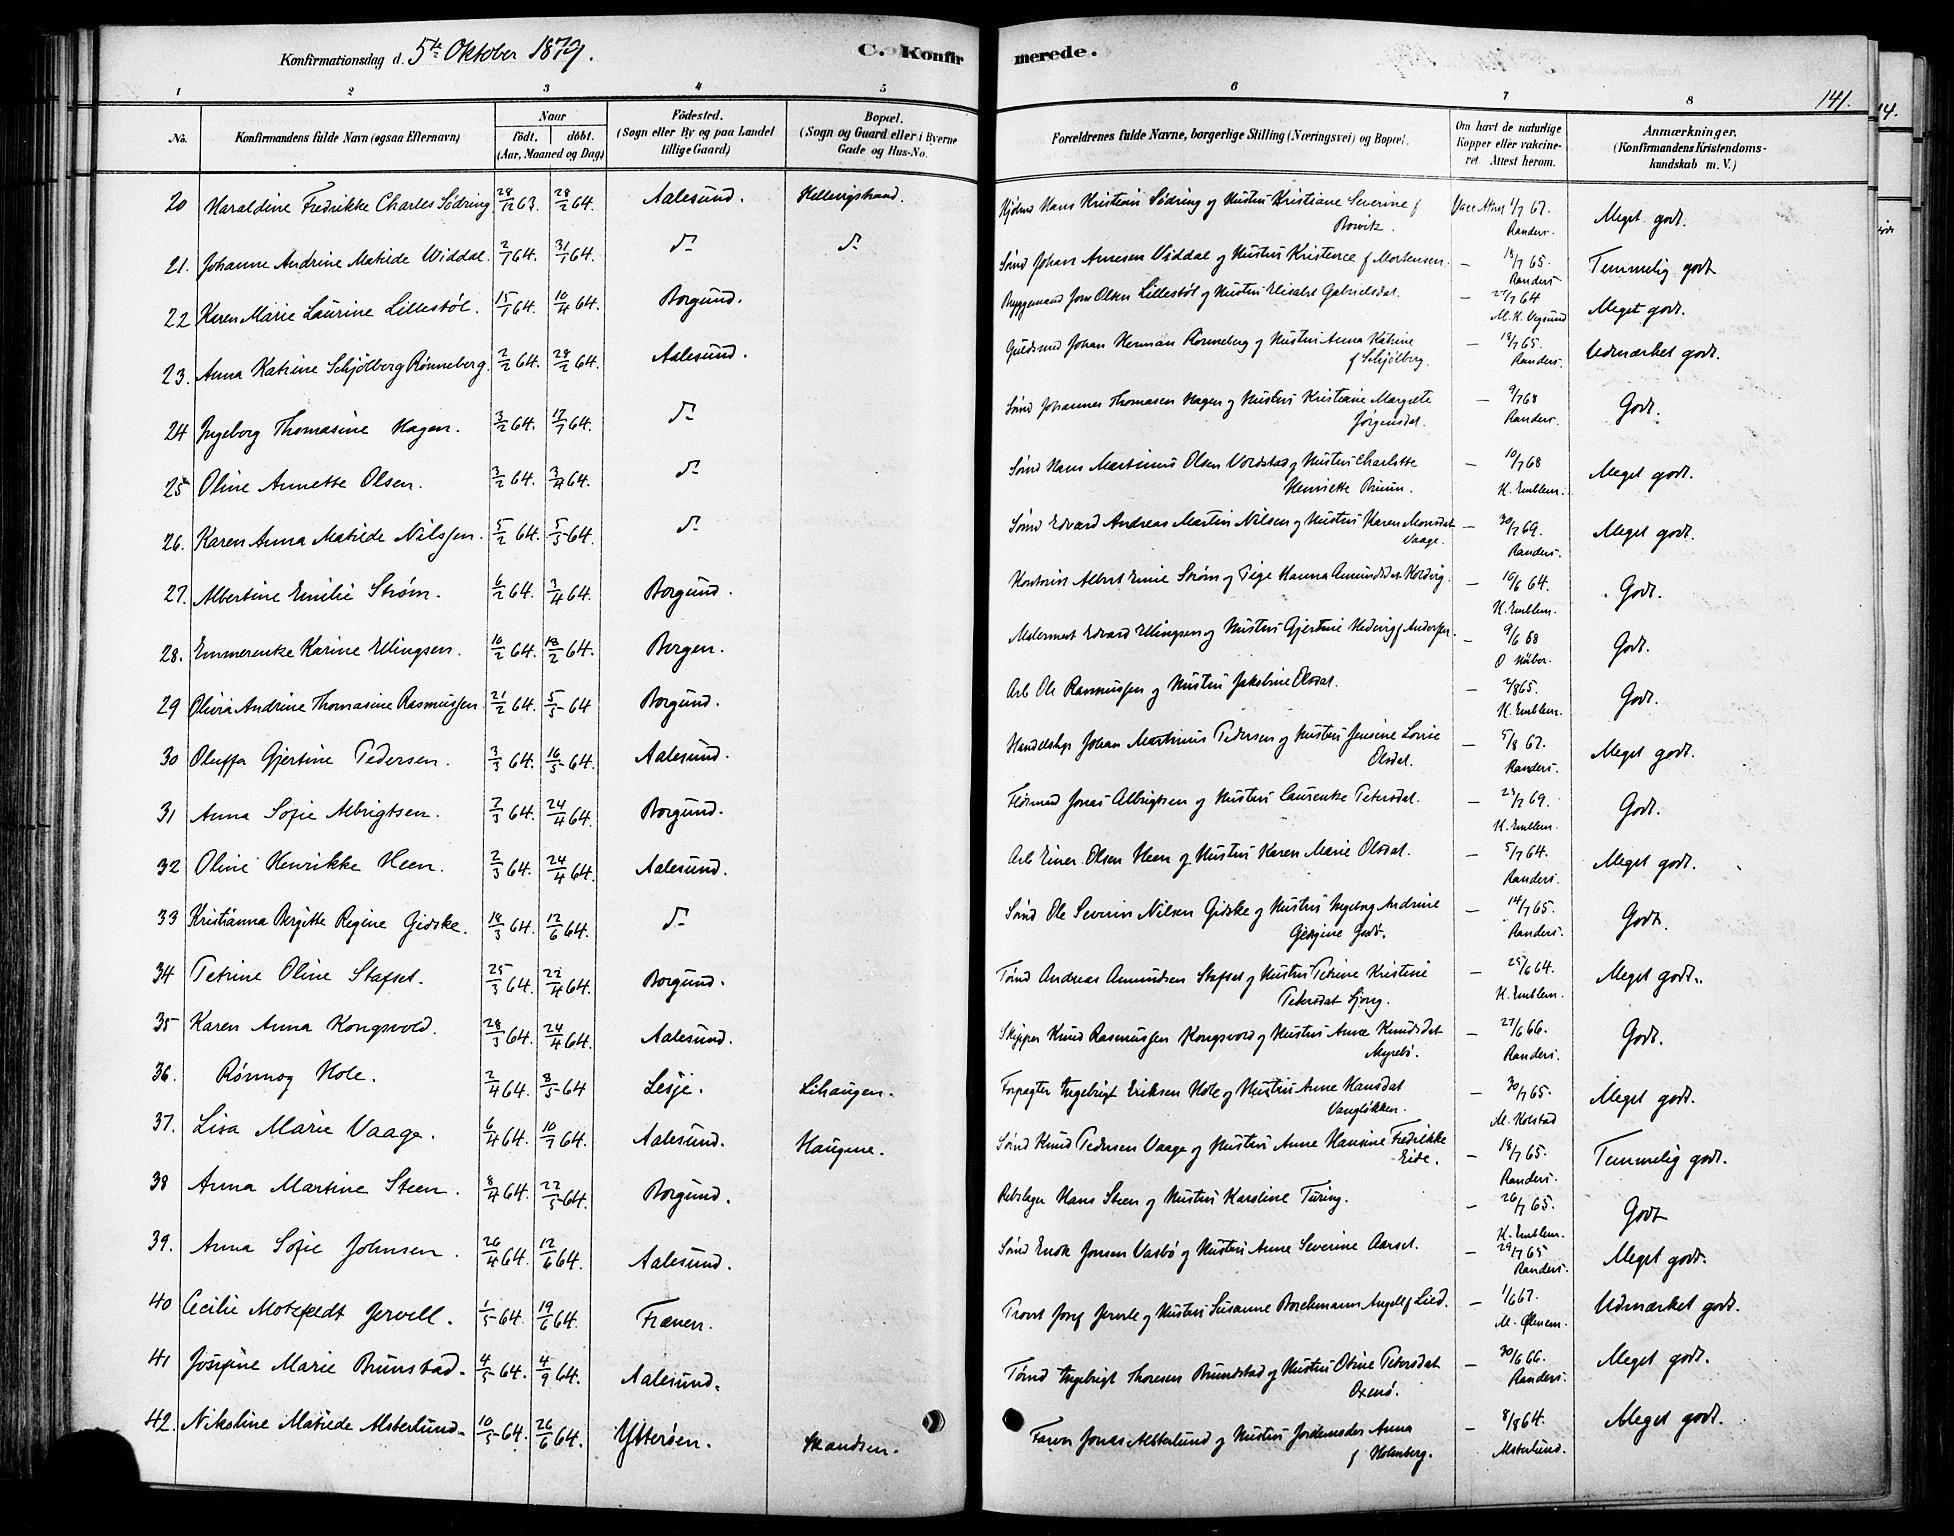 Konfirmationsdag d. 5te Oktober 1879. C. Konfirmerede. 141.
1 2 3 4 5 6 7 8
No. Konfirmandens fulde Navn (ogsaa Efternavn) Naar födt. döbt. (Aar, Maaned og Dag) Födested. (Sogn eller By og paa Landet tillige Gaard) Bopæl. (Sogn og Gaard eller i Byerne Gade og Hus-No. Forældrenes fulde Navne, borgerlige Stilling (Næringsvei) og Bopæl. Om havt de naturlige Kopper eller vakcineret. Attest herom. Anmærkninger. (Konfirmandens Kristendomskundskab m. V.)
20 Haraldine Fredrikke Charles Södring 28/12 63. 28/2 64. Aalesund. Hellingstrand. Hans Kristian Södring og Hustru Kristiane Severine f 1/7 67. Randers. Meget godt.
21. Johanne Andrine Matilde Widdal. 2/1 64. 31/1 64. do do Johan Arnesen Viddal og Hustru Kristence f Mortensen. — 18/7 65. Randers Temmelig godt
22 Karen Marie Laurine Lillestöl. 15/1 64. 10/4 64. Borgund. Byggemand Jon Olsen Lillestöl og Hustru Elisabet Gabrielsdat. — 27/7 64 M. K. Vegsund Meget godt.
23. Anna Katrine Schjölberg Rönneberg. 2/2 64. 28/2 64. Aalesund. Guldsmed Johan Herman Rönneberg og Hustru Anna Katrine f Schjölberg. — 18/7 65. Randers. Udmærket godt.
24 Ingeborg Thomasine Hagen. 3/2 64. 17/7 64. do Johannes Thomasen Hagen og Hustru Kristiane Margrete Jörgensdat. — 9/7 68 Randers. Godt.
25 Oline Annette Olsen. 3/2 64. 3/4 64. do Hans Martinus Olsen Vordstad og Hustru Charlotte Henriette Bruun. — 10/7 68 K. Emblem. Meget godt.
26. Karen Anna Matilde Nilssen. 5/2 64. 5/5 64. do Edvard Andreas Martin Nilsen og Hustru Karen Monsdat Vaage. — 30/7 69. Randers. Meget godt.
27. Albertine Emilie Ström. 6/2 64. 3/4 64. Borgund. Kontorist Albert Emil Ström og Pige Hanna Amundsdat — 10/6 64. K. Emblem. Godt.
28. Emmerentze Karine Ellingsen. 10/2 64. 18/2 64. Bergen. Malermest Edvard Ellingsen og Hustru Gjertine Hedvig f Andersen. — 9/6 68 Godt.
29 Olivia Andrine Thomasine Rasmussen 21/2 64. 5/5 64 Borgund. Arb Ole Rasmussen og Hustru Jakobine Olsdat. — 2/8 65. K. Emblem. Godt.
30 Oluffa Gjertine Pedersen. 3/3 64. 16/5 64. Aalesund. Johan Martinus Pedersen og Hustru Jensine Lovise Olsdat. — 5/8 67. Randers. Meget godt.
31 Anna Sofie Albrigtsen. 7/3 64. 24/4 64. Borgund. Jonas Albrigtsen og Hustru Laurentze Petersdat. — 23/7 69. K. Emblem. Godt.
32 Oline Henrikke Heen. 2/3 64. 24/4 64. Aalesund. Arb Einer Olsen Heen og Hustru Karen Marie Olsdat. — 5/7 64. Randers. Meget godt.
33 Kristianna Bergitte Regine Gidske. 18/3 64. 12/6 64. do Ole Severin Nilsen Gidske og Hustru Ingeborg Andrine — 14/7 65. Randers. Godt.
34 Petrine Oline Stafset. 25/3 64. 22/4 64. Borgund. Andreas Amundsen Stafset og Hustru Petrine Kristine Petersdat Sjong. — 25/6 64. K. Emblem. Meget godt.
35 Karen Anna Kongsvold. 28/3 64. 24/4 64. Aalesund. Skipper Knud Rasmussen Kongsvold og Hustru Anne Knudsdat Myrebö. — 27/6 66. Randers. Godt.
36. Rönnog Hole. 2/4 64. 8/5 64 Lesje. Lihaugen. Forpagter Ingebrigt Eriksen Hole og Hustru Anne Hansdat — 30/7 65. M. Kolstad Meget godt.
37. Lisa Marie Vaage. 6/4 64. 10/7 64. Aalesund. Haugene. Knud Pedersen Vaage og Hustru Anne Hansine Fredrikke Eide. — 18/7 65. Randers. Temmelig godt.
38 Anna Martine Steen. 8/4 64. 22/5 64. Borgund. Rebslager Hans Steen og Hustru Karoline Turing. — 26/7 65. K. Emblem. Godt
39. Anna Sofie Johnsen. 26/4 64. 12/6 64. Aalesund. Enok Jonsen Vasbö og Hustru Anne Severine Aarset. — 29/7 65 Randers. Meget godt.
40 Cecilie Motzfeldt Jervell. 1/5 64. 19/6 64. Frænen. Provst Josef Jervell og Hustru Susanne Borchmann Angell f Lied. — 1/6 67. Udmærket godt.
41 Josefine Marie Brunstad. 4/5 64. 4/9 64. Aalesund. Ingebrigt Thoresen Brundstad og Hustru Oline Petersdat Oxenö. — 30/6 66. Randers. Meget godt.
42. Nikoline Matilde Alsterlund. 10/5 64. 26/6 64. Ytterøen. Skandsen. Farver Jonas Alsterlund og Hustru Anna f Holmberg. — 8/8 64. Alsterlund. Meget godt.
14.